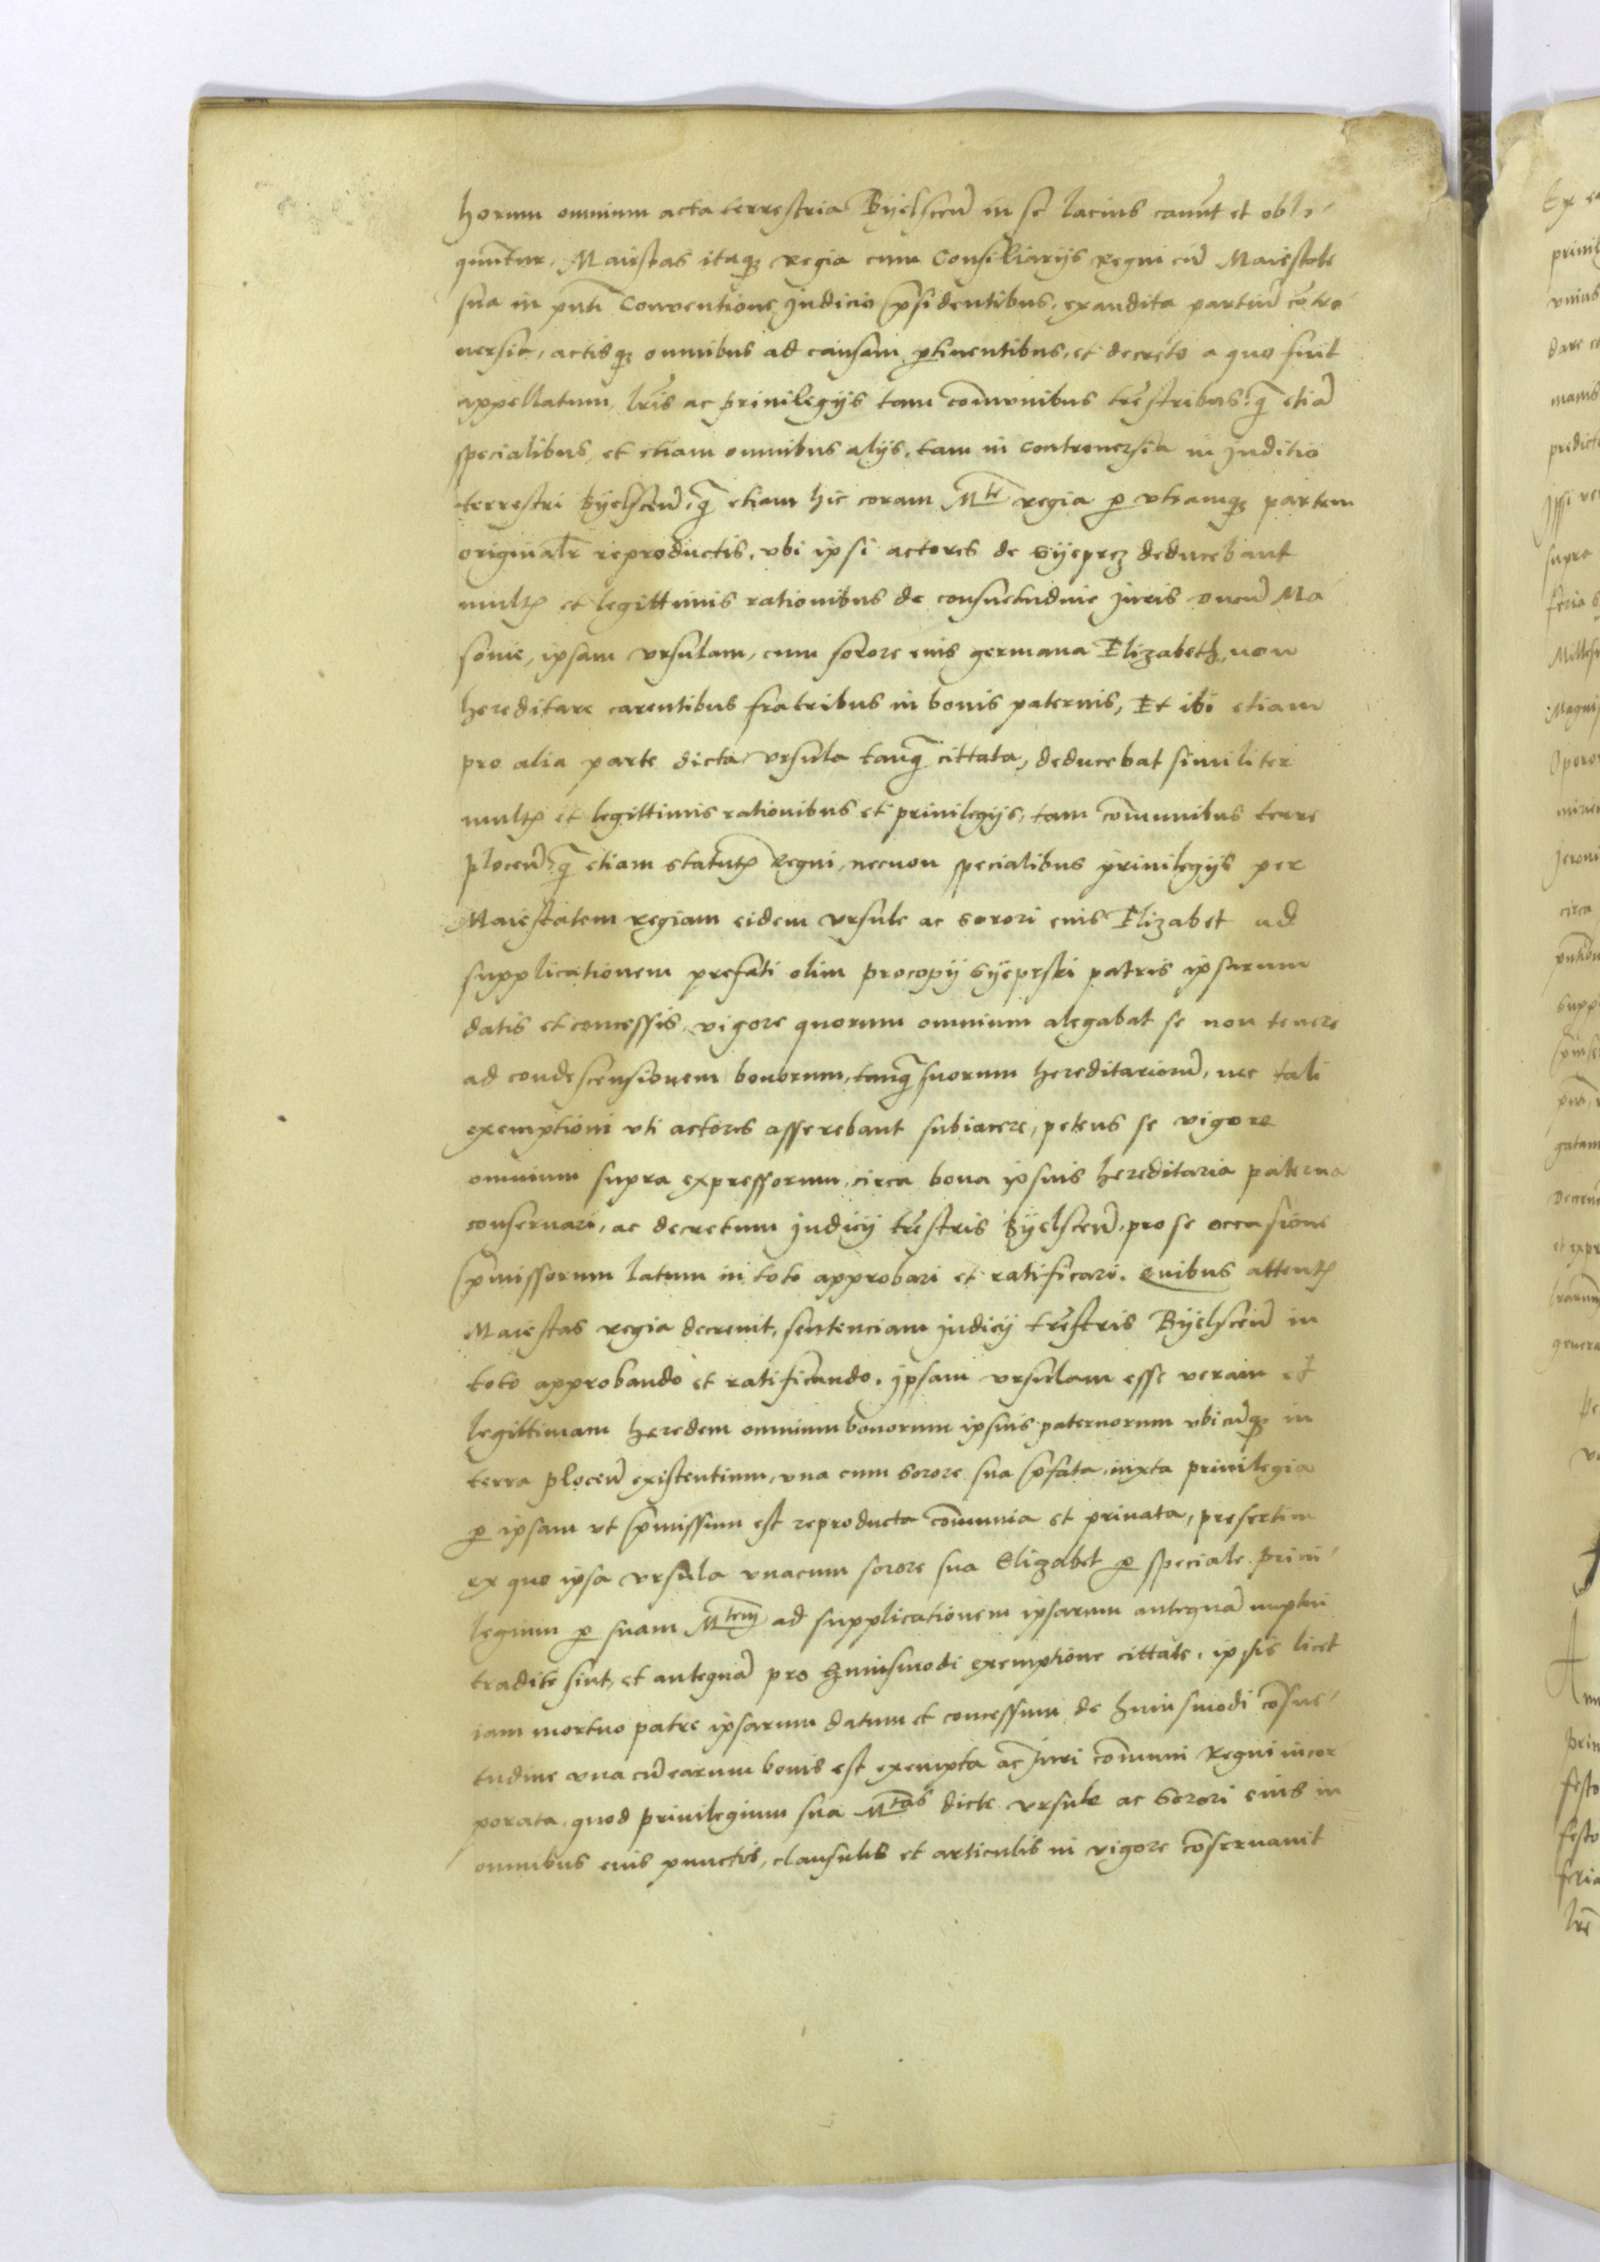 horum omnium acta terrestria Byelscen̄ in se lacius canūt et oblo-
quūntur. Maiestas itaqꝫ regia cum Consiliarijs regni cū Maiestate
sua in pn̄ti Conventione Judicio p̄sidentibus, exaudita partiū cōtro-
uersia, actisqꝫ omnibus ad causam ꝑtinentibus, et decreto a quo fuit
appellatum, lr̄is ac priuilegijs tam com̄unibus tr̄estribus, q̄ etiā
specialibus, et etiam omnibus alijs, tam in controuersia in Juditio
terrestri Byelscen̄, q̄ etiam hic coram Mte regia ꝑ vtramqꝫ partem
originalr̄ reproductis, vbi ipsi actores de Syeprcz deducebant
multꝭ et legittimis rationibus de consuetudine Juris ducū Ma
souie, ipsam vrsulam, cum sorore eius germana Elizabeth, non
hereditare carentibus fratribus in bonis paternis, Et ibi etiam
pro alia parte dicta Vrsula tanq̄ cittata, deducebat similiter
multꝭ et legittimis rationibus et priuilegijs, tam com̄unibus terre
plocen̄, q̄ etiam statutꝭ Regni, necnon specialibus priuilegijs per
Maiestatem regiam eidem vrsule ac sorori eius Elizabet ad
supplicationem prefati olim procopij Syeprski patris ipsarum
datis et concessis, vigore quorum omnium alegabat se non tenere
ad condescensionem bonorum, tanq̄ suorum hereditariorū, nec tali
exemptioni vti actores asserebant subiacere, petens se vigore
omnium supra expressorum, circa bona ipsius hereditaria paterna
conseruari, ac decretum Judicij tr̄estris Byelscen̄, pro se occasione
p̄missorum latum in toto approbari et ratificari. Quibus attentꝭ
Maiestas regia decreuit, sentenciam Judicij tr̄estris Byelscen̄ in
toto approbando et ratificando, ipsam vrsulam esse veram et
legittimam heredem omnium bonorum ipsius paternorum vbicūqꝫ in
terra plocen̄ existentium, vna cum sorore sua p̄fata, iuxta priuilegia
ꝑ ipsam vt p̄missum est reproducta com̄unia et priuata, presertim
ex quo ipsa vrsula vnacum sorore sua Elizabet ꝑ speciale priui-
legium ꝑ suam Mtem ad supplicationem ipsarum antequā nuptui
tradite sint, et antequā pro huiusmodi exemptione cittate, ipsis licet
iam mortuo patre ipsarum datum et concessum de huiusmodi cōsue-
tudine vna cū earum bonis est exempta ac Juri com̄uni Regni incor-
porata, quod priuilegium sua Mtas dicte vrsule ac Sorori eius in
omnibus eius punctis, clausulis et articulis in vigore cōseruauit